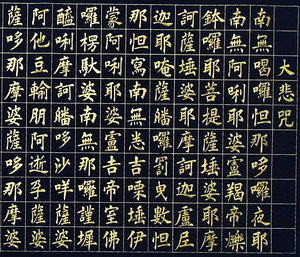 大悲咒
南無喝囉怛那哆囉夜耶
南無阿唎耶婆盧羯帝爍
鉢囉耶菩提薩埵婆耶摩
訶薩埵婆耶摩訶迦盧尼
迦耶唵薩皤囉罰曳數怛
那怛寫南無悉吉嘌埵伊
蒙阿唎耶婆盧吉帝室佛
囉楞馱婆南無那囉謹墀
醯唎摩訶皤哆沙咩薩婆
阿他豆輸朋阿逝孕薩婆
薩哆那摩婆薩哆那摩婆